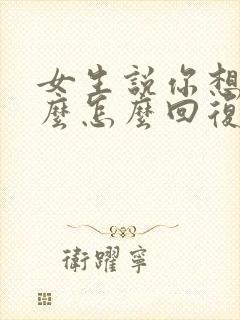 女生説你想
麼怎麼回復
衛躍寧